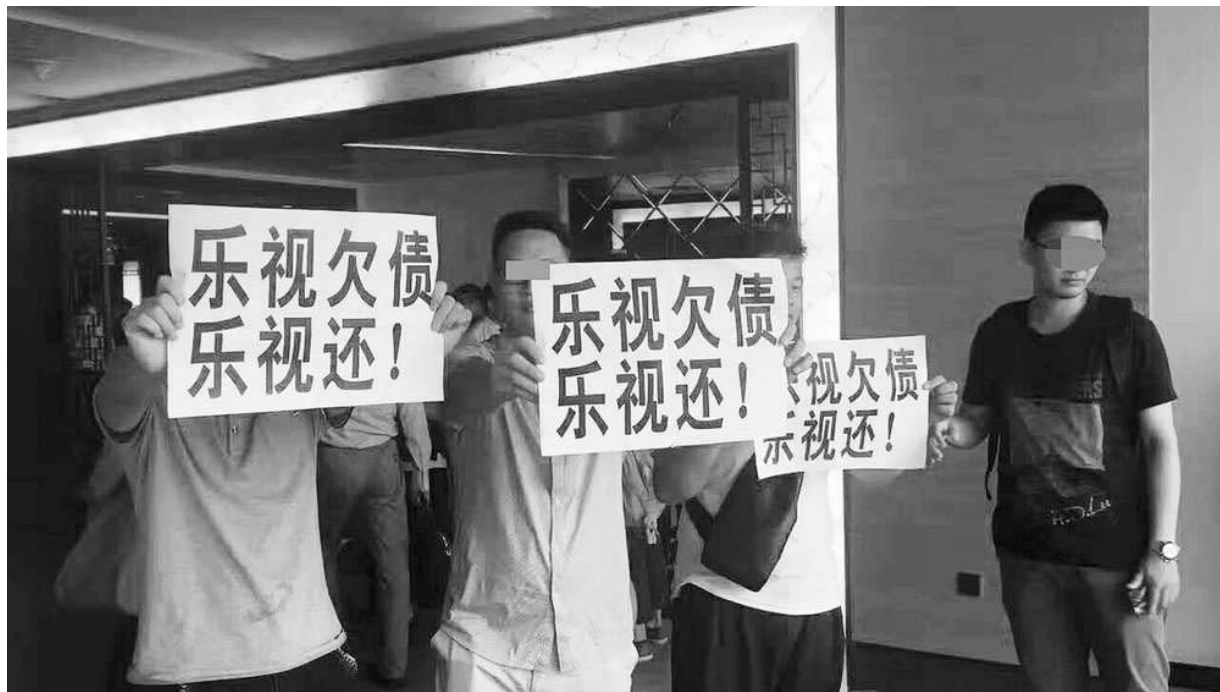 乐视欠债
乐视还!
乐视欠债
乐视还!
乐视欠债
乐视还!